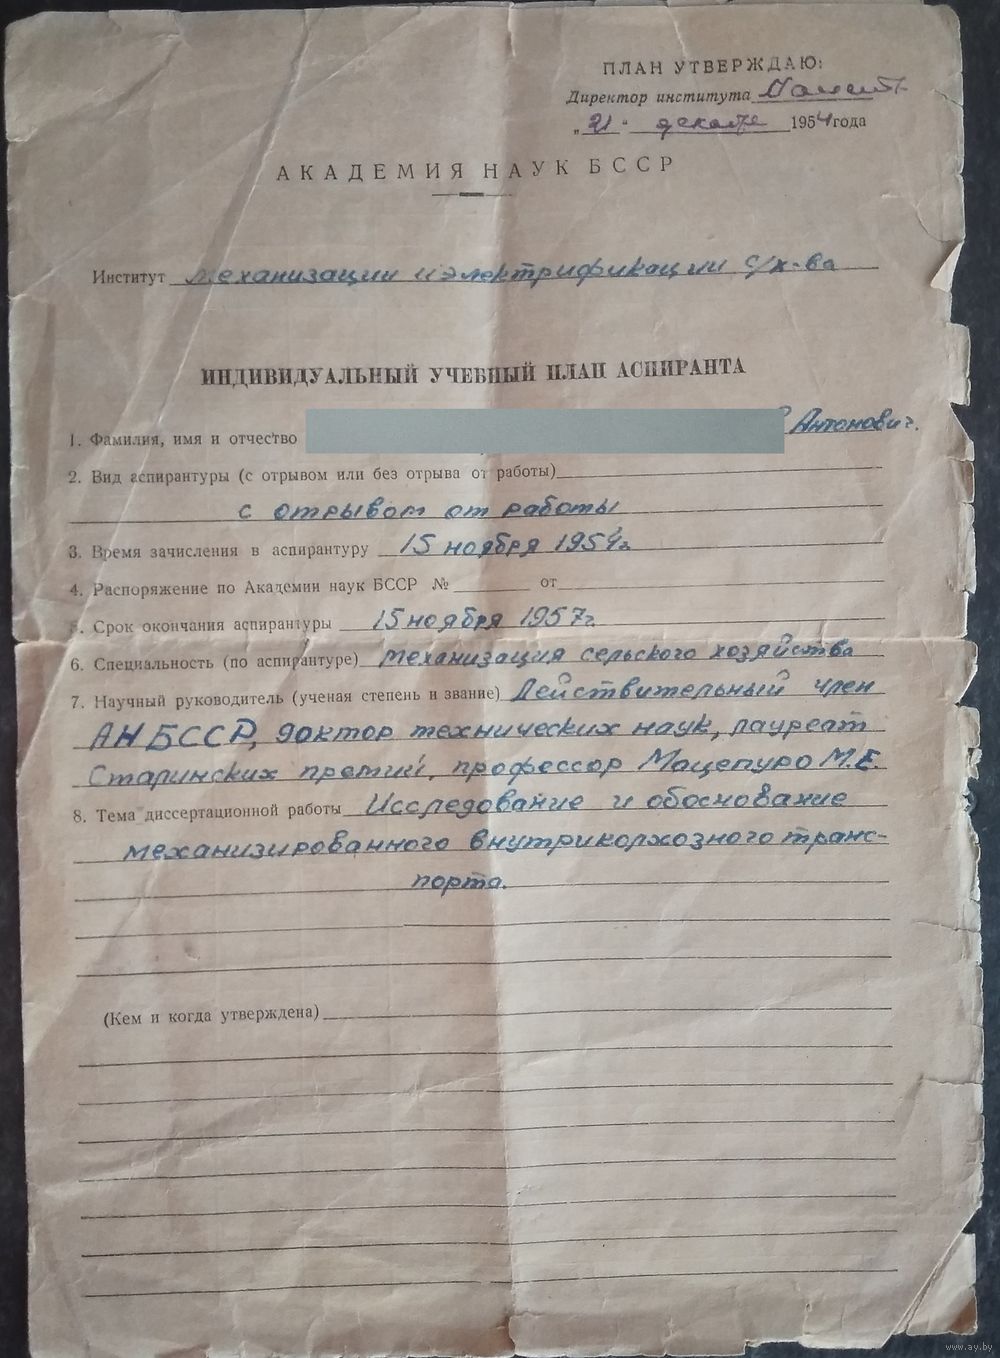 ПЛАН УТВЕРЖДАЮ:
Директор института
„21" декабря 1954 года
АКАДЕМИЯ НАУК БССР
Институт Механизации и электрификации с/х-ва
ИНДИВИДУАЛЬНЫЙ УЧЕБНЫЙ ПЛАН АСПИРАНТА
1. Фамилия, имя и отчество Антонович.
2. Вид аспирантуры (с отрывом или без отрыва от работы)
с отрывом от работы
3. Время зачисления в аспирантуру 15 ноября 1954г.
4. Распоряжение по Академии наук БССР № от
5. Срок окончания аспирантуры 15 ноября 1957г.
6. Специальность (по аспирантуре) механизация сельского хозяйства
7. Научный руководитель (ученая степень и звание) Действительный член
АН БССР, доктор технических наук, лауреат
Сталинских премий, профессор Мацепуро М.Е.
8. Тема диссертационной работы Исследование и обоснование
механизированного внутриколхозного транс-
порта.
(Кем и когда утверждена)
www.ay.by